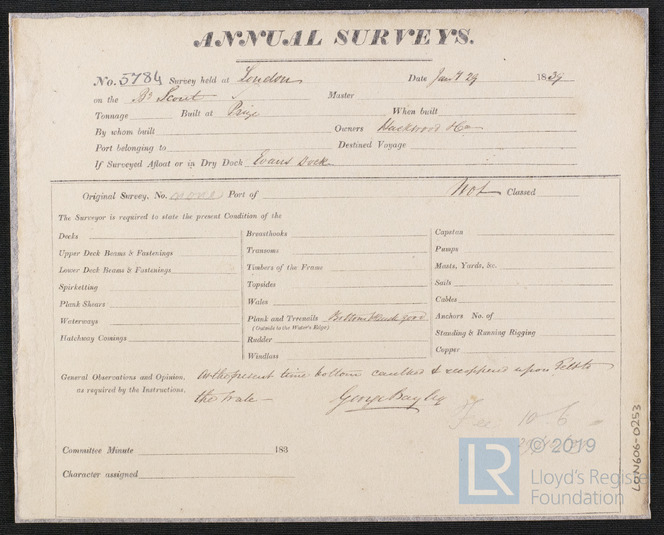 ANNUAL SURVEYS.
No. 5784 Survey held at London Date Jany 29 1839
on the Bk Scout Master
Tonnage Built at Prize When built
By whom built Owners
Port belonging to Destined Voyage
If Surveyed Afloat or in Dry Dock Evans Dock
Original Survey, No. none Port of Not Classed
The Surveyor is required to state the present Condition of the
Decks
Upper Deck Beams & Fastenings
Lower Deck Beams & Fastenings
Spirketting
Plank Shears
Waterways
Hatchway Comings
Breasthooks
Transoms
Timbers of the Frame
Topsides
Wales
Plank and Treenails Bottom Plank good
(Outside to the Water's Edge)
Rudder
Windlass
Capstan
Pumps
Masts, Yards, &c.
Sails
Cables
Anchors No. of
Standing & Running Rigging
Copper
General Observations and Opinion, At the present time bottom caulked & recoppered upon Felt to
as required by the Instructions. the Wale – George Bayley
Fee 10 6
Committee Minute 183
Character assigned
LON606-0253
LR © 2019
Lloyd's Register
Foundation